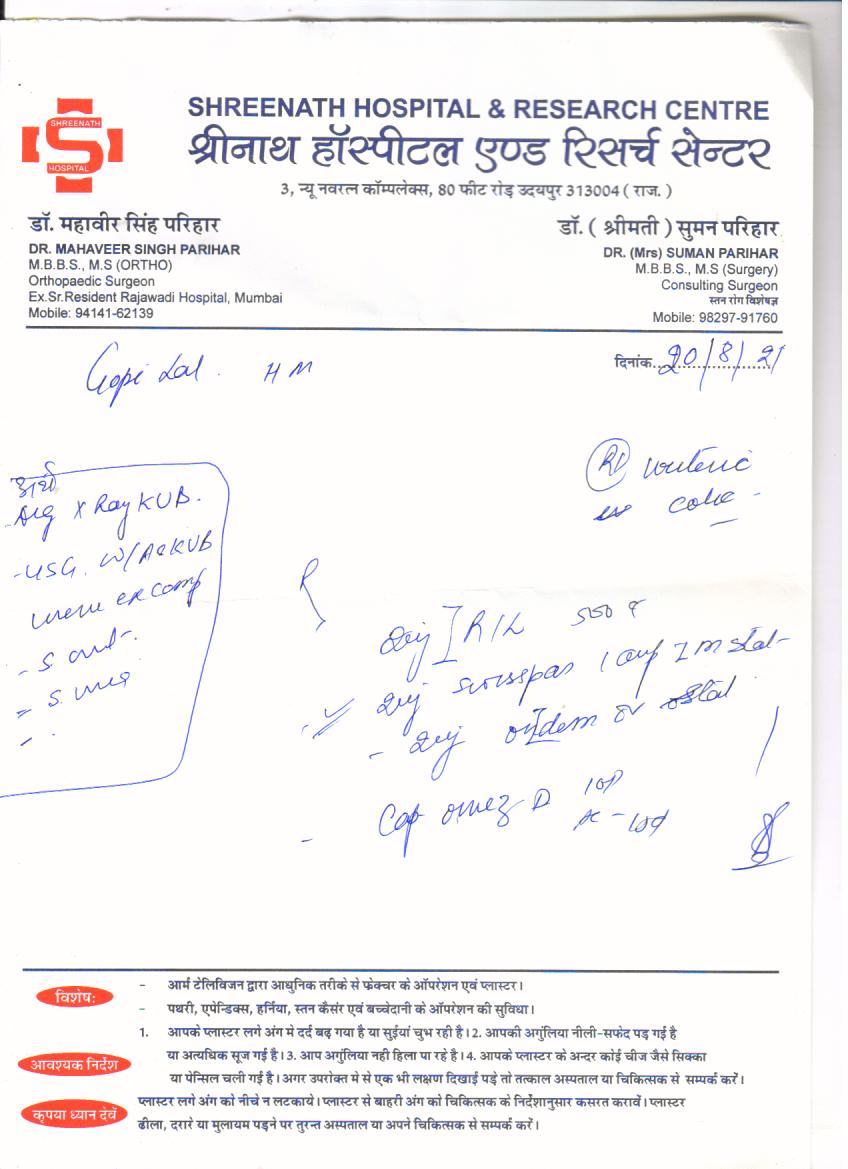 SHREENATH
HOSPITAL
SHREENATH HOSPITAL & RESEARCH CENTRE
श्रीनाथ हॉस्पीटल एण्ड रिसर्च सेन्टर
3, न्यू नवरत्न कॉम्पलेक्स, 80 फीट रोड़ उदयपुर 313004 ( राज. )
डॉ. महावीर सिंह परिहार
DR. MAHAVEER SINGH PARIHAR
M.B.B.S., M.S (ORTHO)
Orthopaedic Surgeon
Ex.Sr.Resident Rajawadi Hospital, Mumbai
Mobile: 94141-62139
डॉ. ( श्रीमती ) सुमन परिहार
DR. (Mrs) SUMAN PARIHAR
M.B.B.S., M.S (Surgery)
Consulting Surgeon
स्तन रोग विशेषज्ञ
Mobile: 98297-91760
दिनांक 20/8/21
Gopi Lal. H M
Rt ureteric
colic -
X Ray KUB.
- USG. KUB
- S.
= S.
R
Inj R/L 500
Inj 1 amp I M stat
- Inj stat
- Cap omez D 10
विशेषः
- आर्म टेलिविजन द्वारा आधुनिक तरीके से फ्रेक्चर के ऑपरेशन एवं प्लास्टर।
- पथरी, एपेन्डिक्स, हर्निया, स्तन कैसंर एवं बच्चेदानी के ऑपरेशन की सुविधा।
आवश्यक निर्देश
1. आपके प्लास्टर लगे अंग मे दर्द बढ़ गया है या सुईयां चुभ रही है। 2. आपकी अगुंलिया नीली-सफेद पड़ गई है
या अत्यधिक सूज गई है। 3. आप अगुंलिया नही हिला पा रहे है। 4. आपके प्लास्टर के अन्दर कोई चीज जैसे सिक्का
या पेन्सिल चली गई है। अगर उपरोक्त मे से एक भी लक्षण दिखाई पड़े तो तत्काल अस्पताल या चिकित्सक से सम्पर्क करें।
कृपया ध्यान देवें
प्लास्टर लगे अंग को नीचे न लटकाये। प्लास्टर से बाहरी अंग को चिकित्सक के निर्देशानुसार कसरत करावें। प्लास्टर
ढीला, दरारे या मुलायम पड़ने पर तुरन्त अस्पताल या अपने चिकित्सक से सम्पर्क करें।